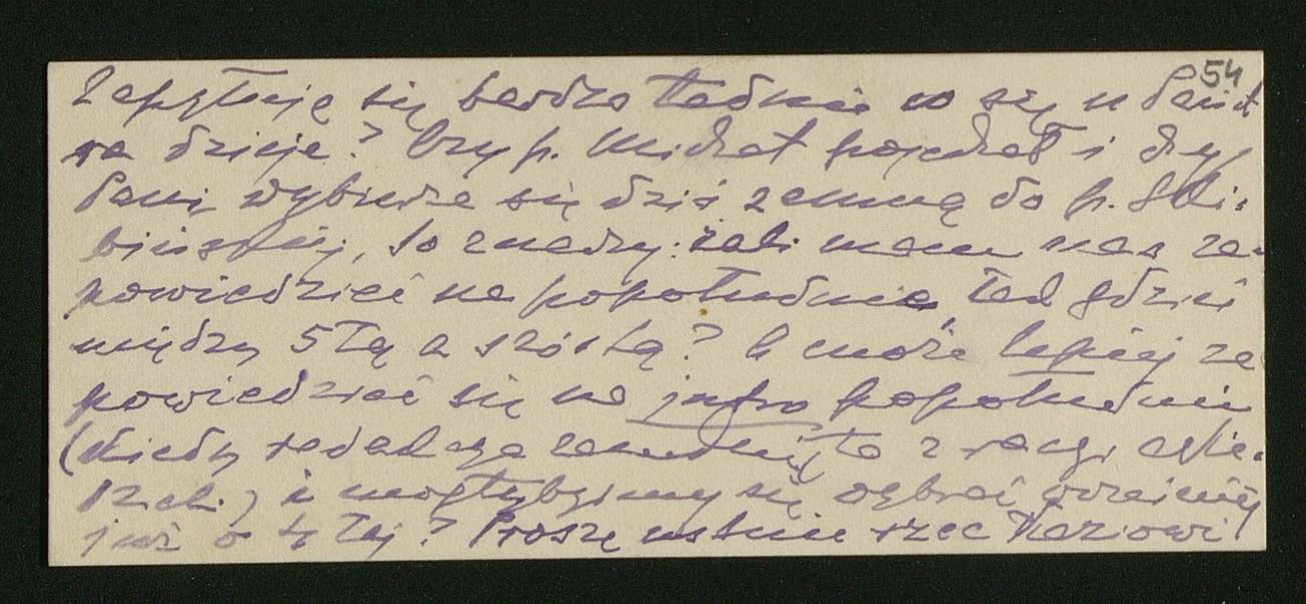 54
Zapytuję się bardzo ładnie co się u Pań
dzieje? Czy p. Michał pojechał i czy
Pani wybierze się dziś zemną do p.
to znaczy: żeli mam nas za-
powiedzieć na popołudnie, tak gdzieś
między 5tą a szóstą? A może lepiej za
powiedzieć się na jutro popołudniu
(kiedy redakcya zamknięta z racyi
) i mogłybyśmy się wybrać wcześniej
już o 4tej? Proszę ustnie rzec Kaziowi